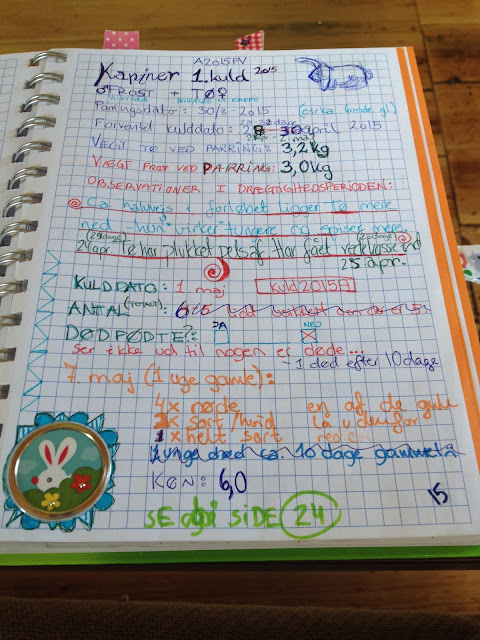 A2015FV
Kaniner 1. kuld 2015
♂FROST + TØ♀
Parringsdato: 30/3-2015
Forventet kulddato: april 2015
VÆGT TØ VED PARRING: 3,2 kg
VÆGT FROST VED PARRING: 3,0 kg
OBSERVATIONER I DRÆGTIGHEDSPERIODEN:
Ca halvvejs i forløbet ligger Tø mere
ned - hun virker tungere og spiser mere.
24 apr. Tø har plukket pels af. Har fået redekasse ind
25 apr.
KULDDATO: 1. maj kuld 2015A
ANTAL (TOTALT):
DØDFØDTE?: JA NEJ
Ser ikke ud til nogen er døde...
- 1 død efter 10 dage
7. maj (1 uge gamle):
4x røde en af de gule
2x sort/hvid lå udenfor
1x helt sort reden
1 unge død ca. 10 dage gammel
KØN: 6,0
15
SE også SIDE 24